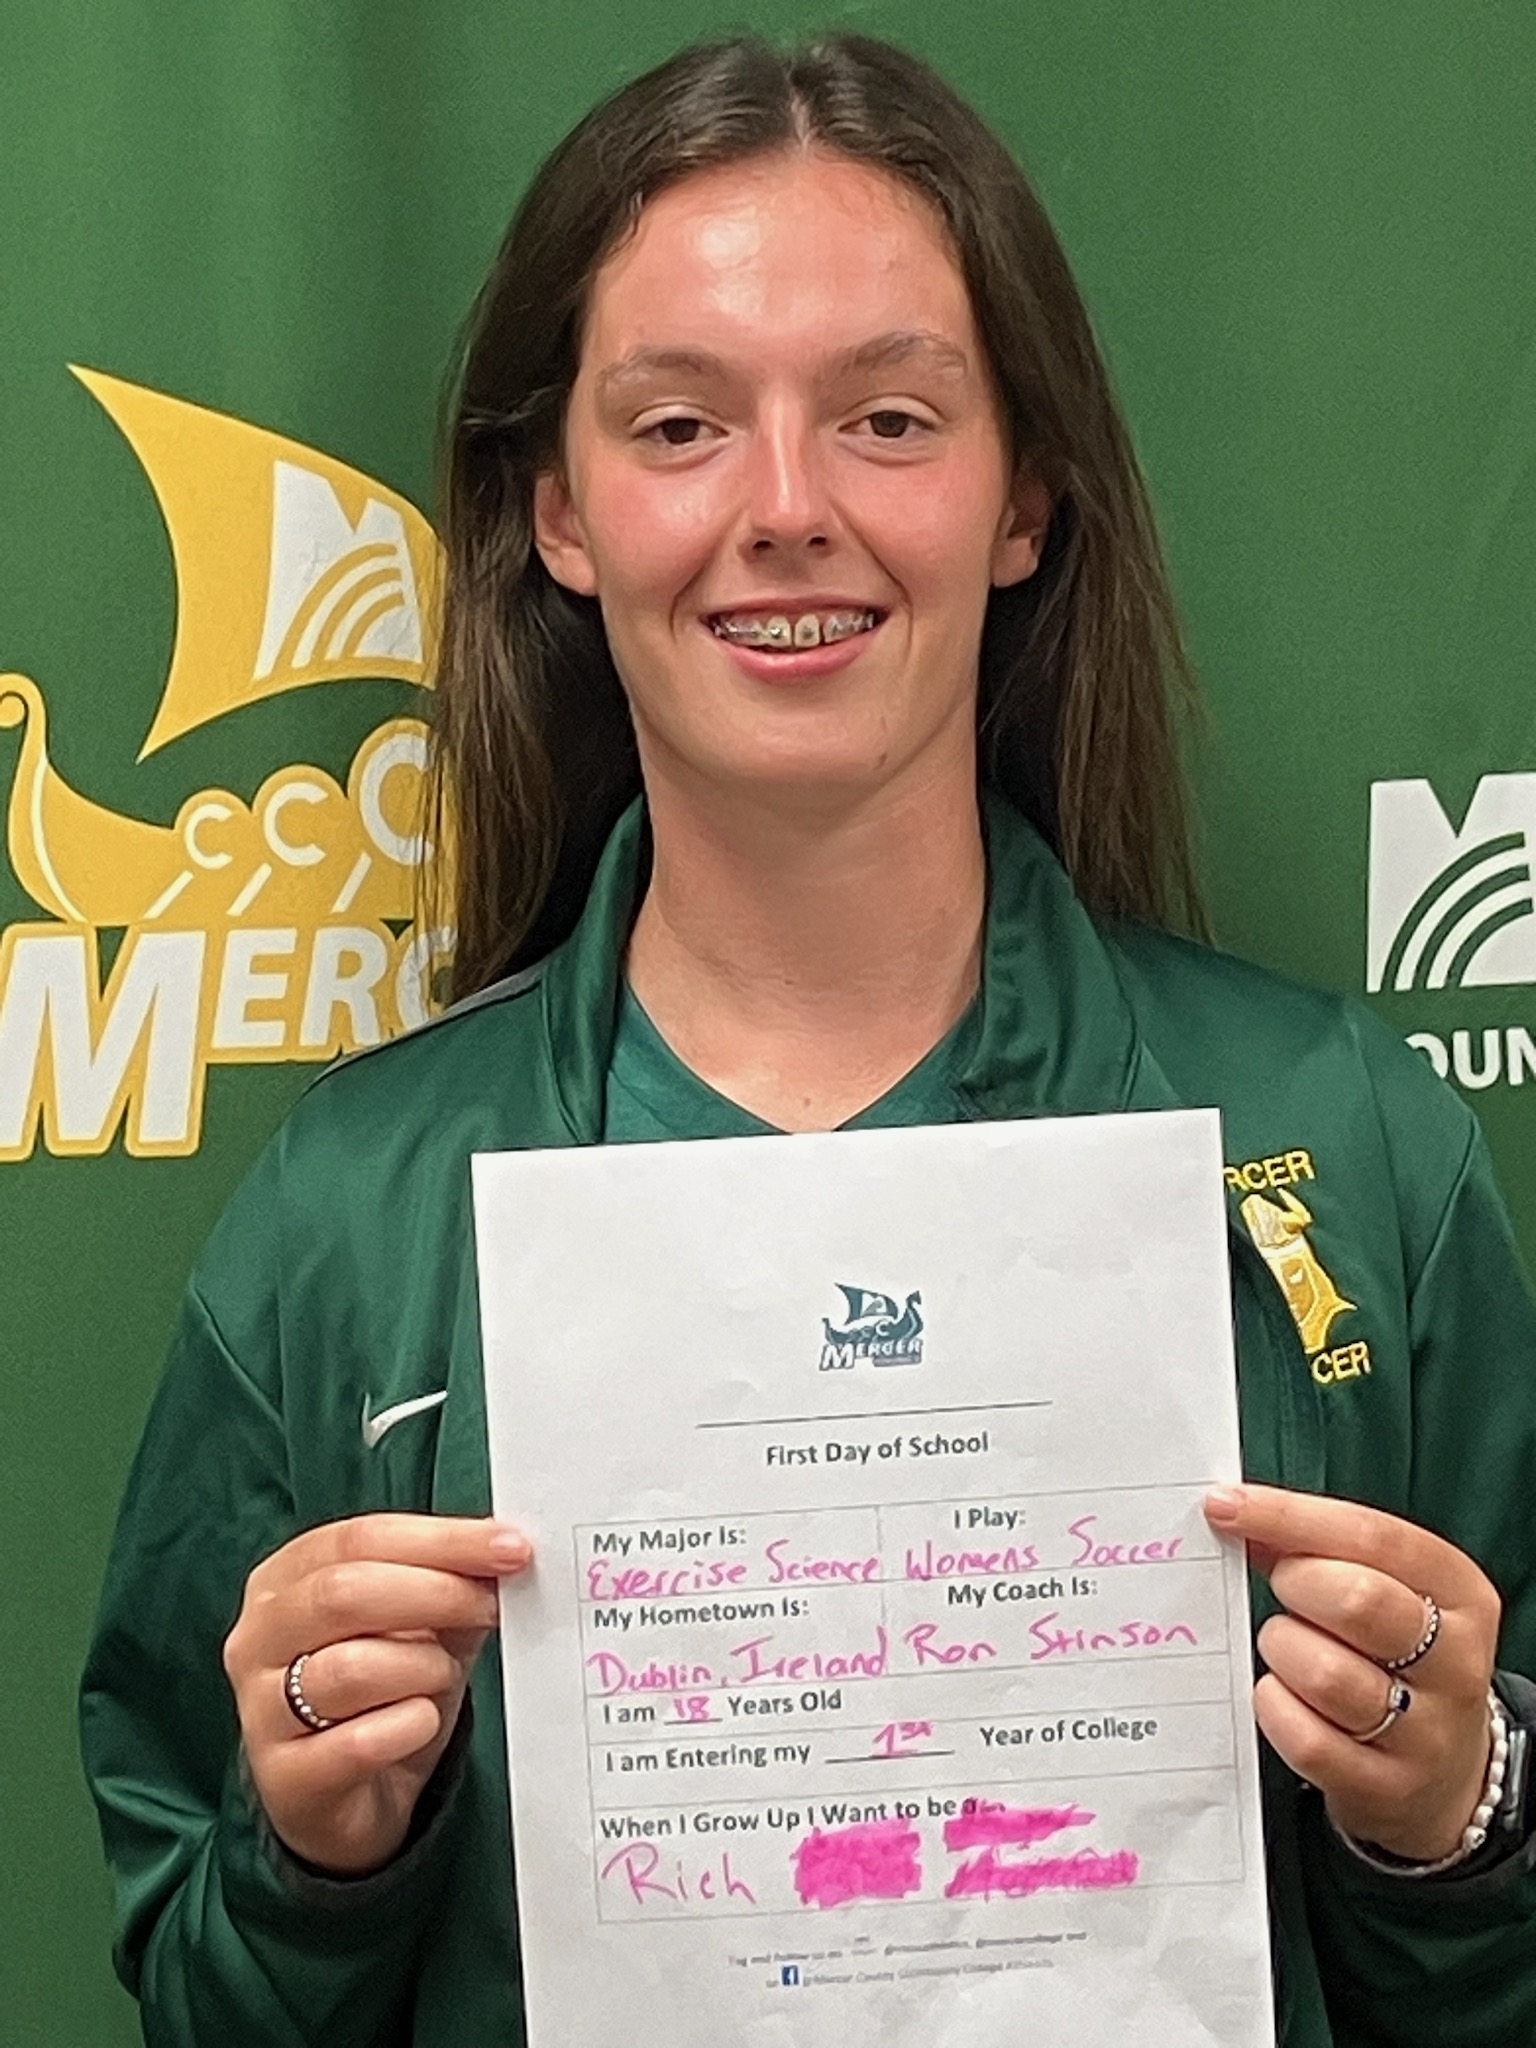 M
CCC
MERC
M
OUN
RCER
CER
CC
MERCER
First Day of School
My Major Is:
Exercise Science
I Play:
Womens Soccer
My Hometown Is:
Dublin, Ireland
My Coach Is:
Ron Stinson
I am 18 Years Old
I am Entering my 1st Year of College
When I Grow Up I Want to be a
Rich
Tag and follow us on
on f @Mercer County Community College Athletics